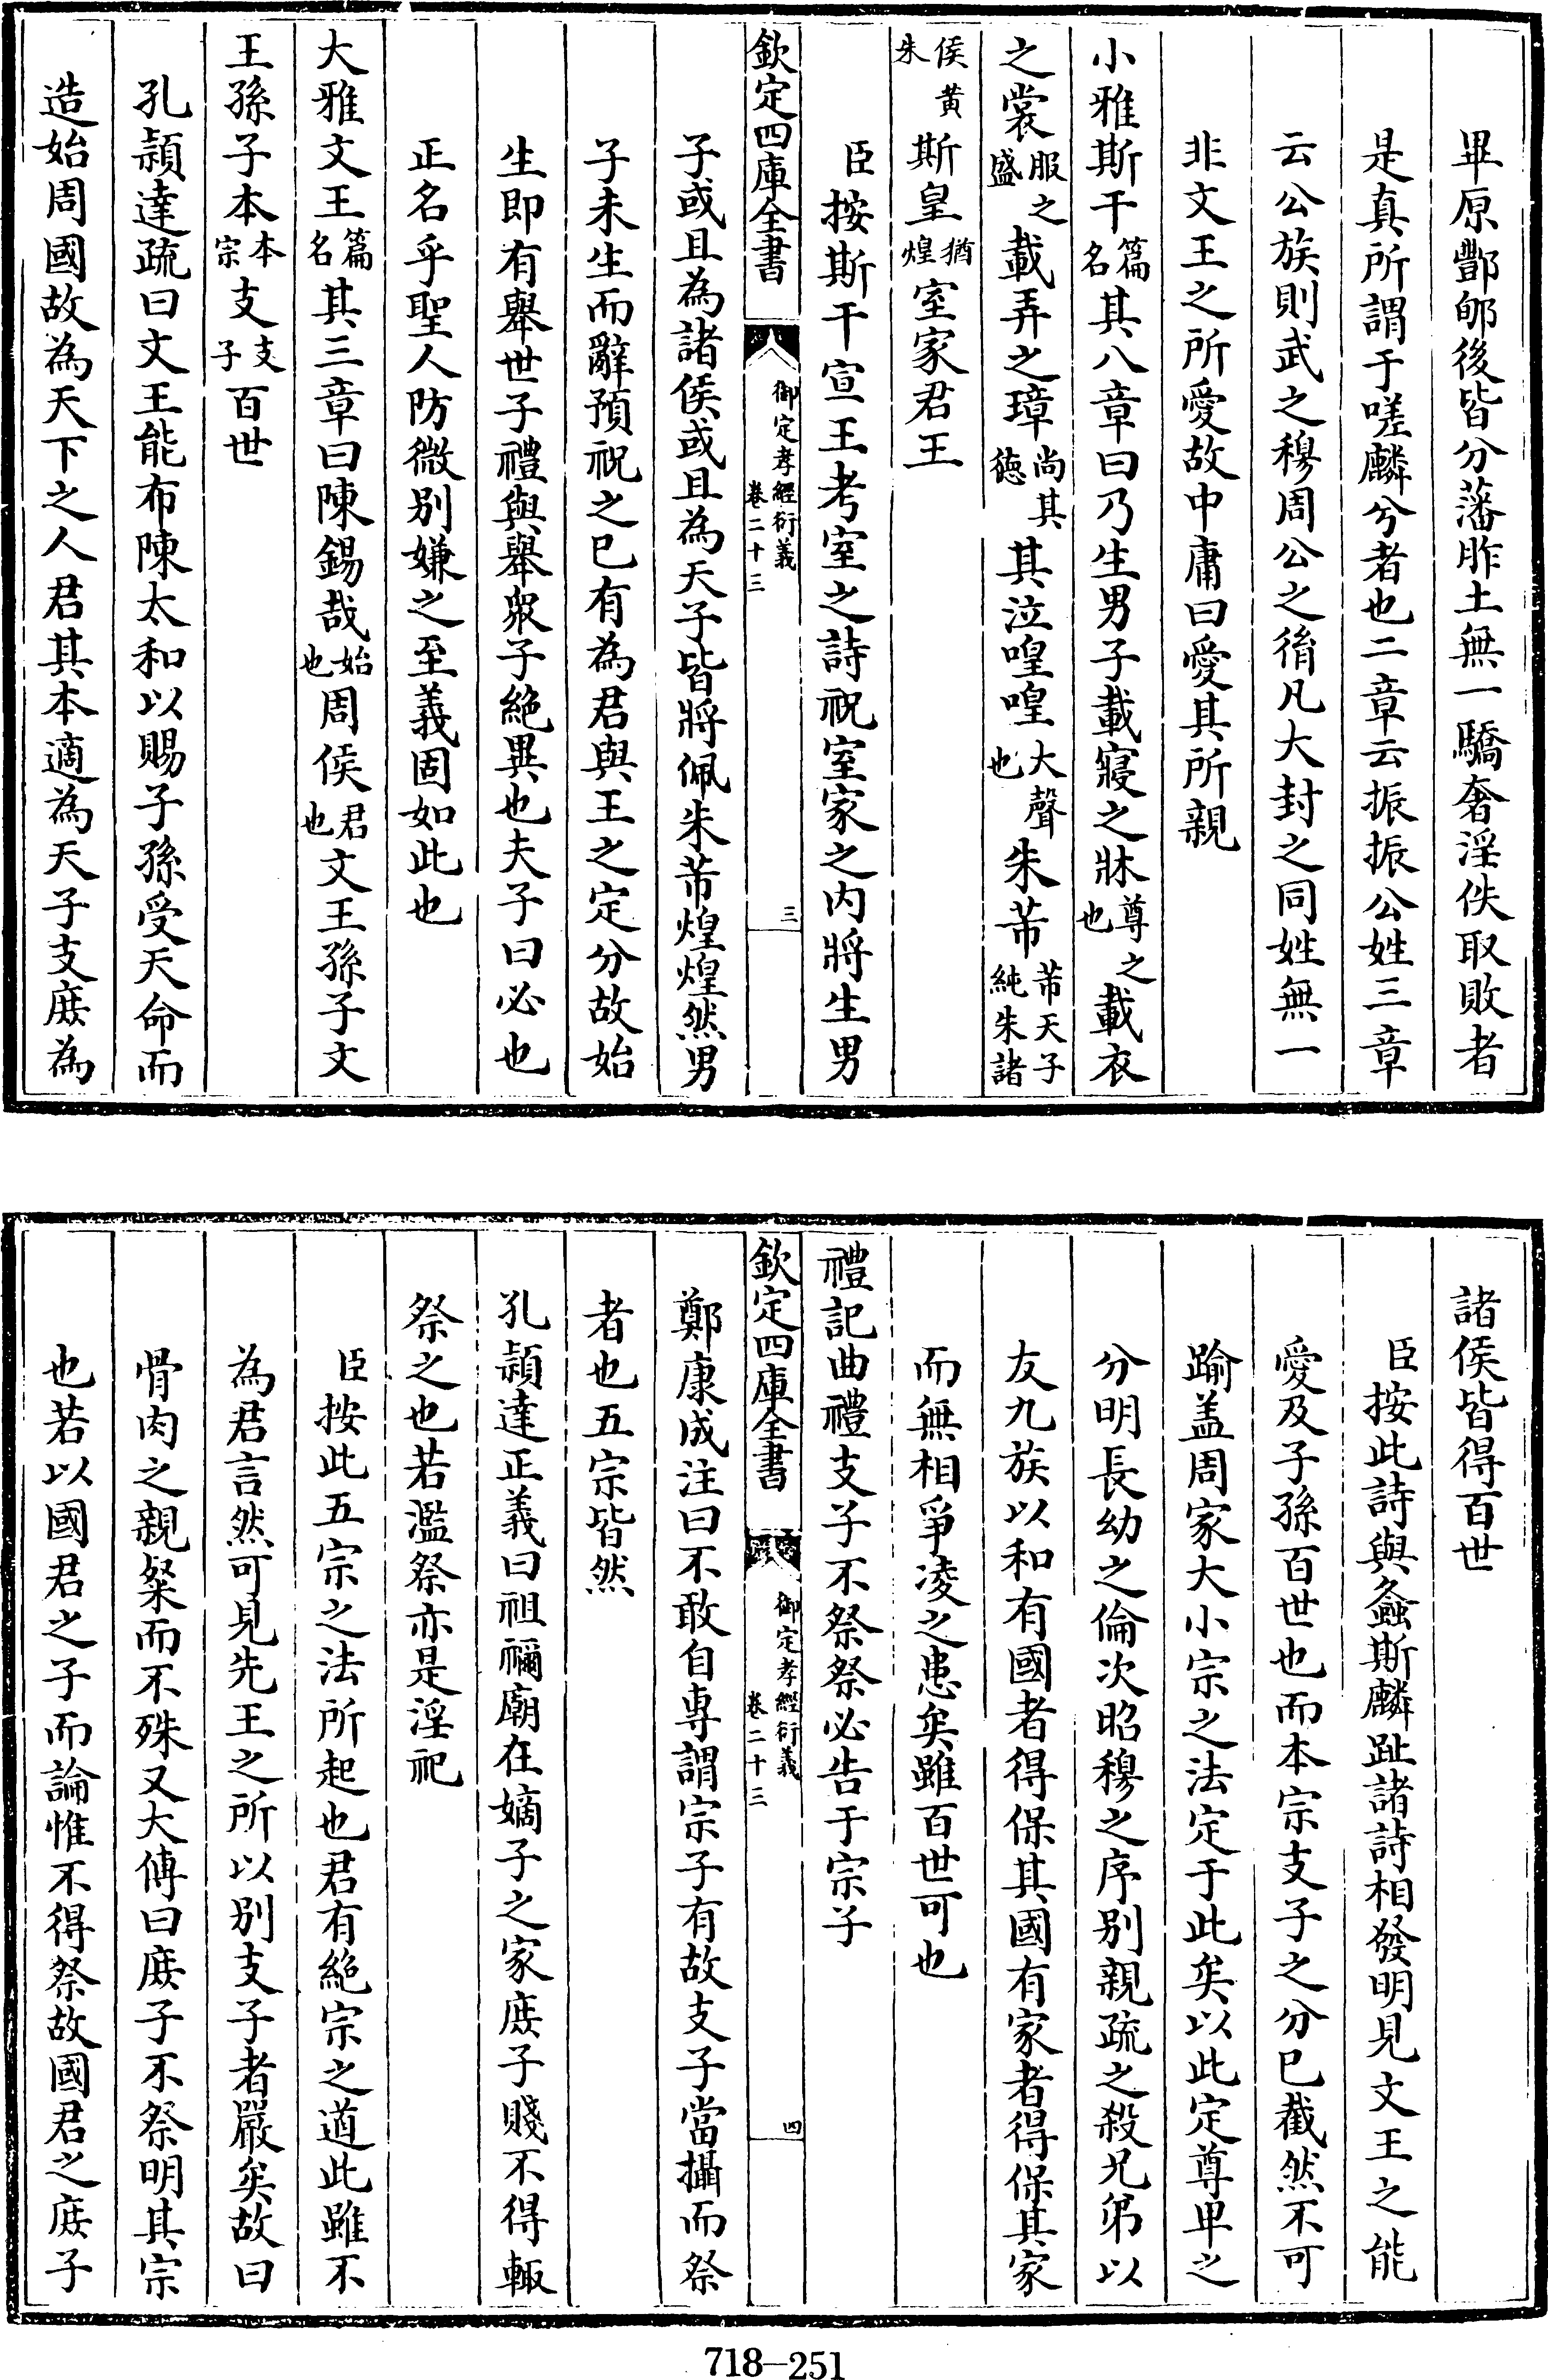 畢原酆郇後皆分藩胙土無一驕奢淫佚取敗者
是真所謂于嗟麟兮者也二章云振振公姓三章
云公族則武之穆周公之後凡大封之同姓無一
非文王之所愛故中庸曰愛其所親
小雅斯干篇名其八章曰乃生男子載寢之牀尊之也載衣
之裳服之盛載弄之璋尚其德其泣喤喤大聲也朱芾芾天子純朱諸
侯黄朱斯皇猶煌室家君王
臣按斯干宣王考室之詩祝室家之内將生男
欽定四庫全書 御定孝經衍義 卷二十三 三
子或且為諸侯或且為天子皆將佩朱芾煌煌然男
子未生而辭預祝之已有為君與王之定分故始
生即有舉世子禮與舉衆子絶異也夫子曰必也
正名乎聖人防微别嫌之至義固如此也
大雅文王篇名其三章曰陳錫哉始也周侯君也文王孫子文
王孫子本本宗支支子百世
孔頴達疏曰文王能布陳太和以賜子孫受天命而
造始周國故為天下之人君其本適為天子支庶為
諸侯皆得百世
臣按此詩與螽斯麟趾諸詩相發明見文王之能
愛及子孫百世也而本宗支子之分已截然不可
踰盖周家大小宗之法定于此矣以此定尊卑之
分明長幼之倫次昭穆之序别親疏之殺兄弟以
友九族以和有國者得保其國有家者得保其家
而無相爭凌之患矣雖百世可也
禮記曲禮支子不祭祭必告于宗子
欽定四庫全書 御定孝經衍義 卷二十三 四
鄭康成注曰不敢自專謂宗子有故支子當攝而祭
者也五宗皆然
孔頴達正義曰祖禰廟在嫡子之家庶子賤不得輙
祭之也若濫祭亦是淫祀
臣按此五宗之法所起也君有絶宗之道此雖不
為君言然可見先王之所以别支子者嚴矣故曰
骨肉之親粲而不殊又大傅曰庶子不祭明其宗
也若以國君之子而論惟不得祭故國君之庶子
718-251